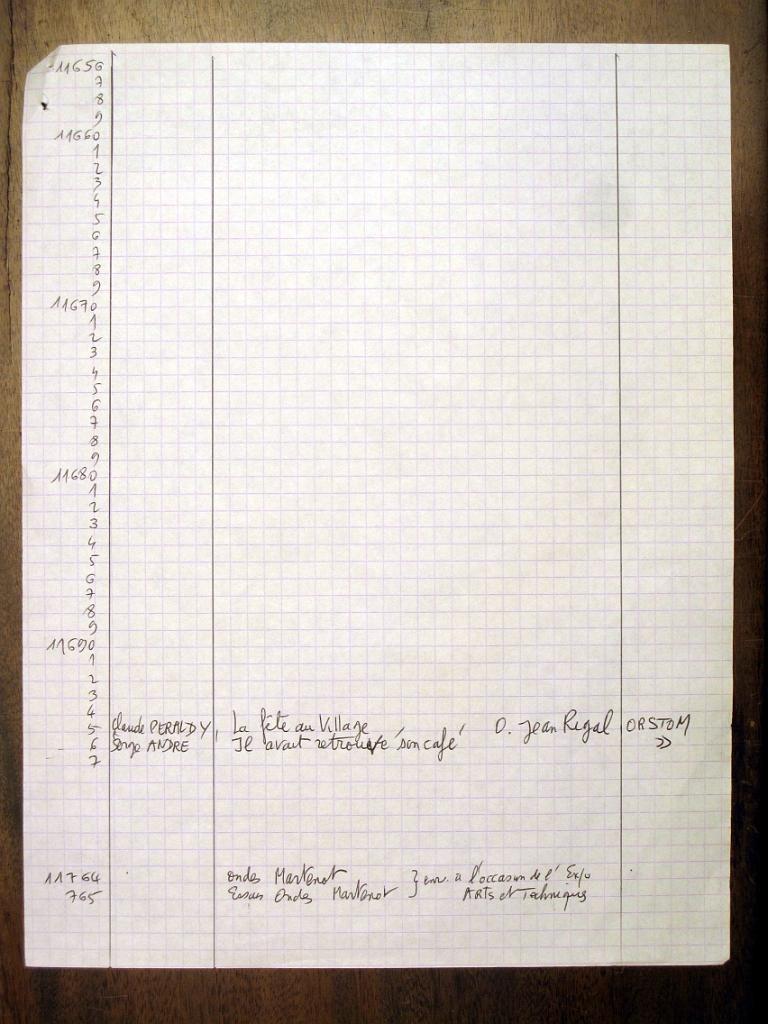 11656
7
8
9
11660
1
2
3
4
5
6
7
8
9
11670
1
2
3
4
5
6
7
8
9
11680
1
2
3
4
5
6
7
8
9
11690
1
2
3
4
5 Claude PERALDY, La fête au Village O. Jean Rigal ORSTOM
6 Serge ANDRE Il avait retrouvé 'son café' »
7
11764 ondes Martenot } enr. à l'occasion de l' Expo
765 Essais Ondes Martenot ARts et Techniques